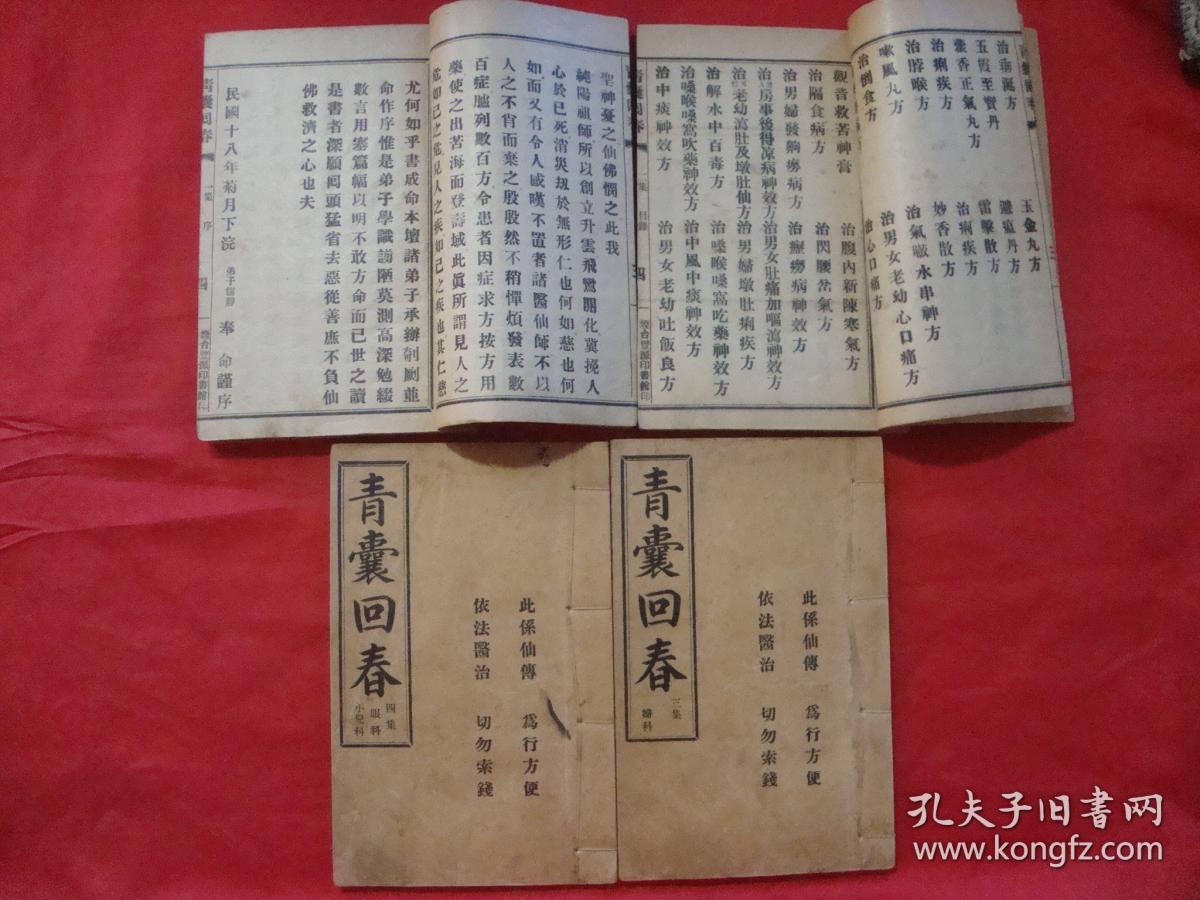 聖神憂之仙佛憫之此我
純陽祖師所以創立升雲飛鸞開化冀挽人
心於已死消災刧於無形仁也何如慈也何
如而又有令人感嘆不置者諸醫仙師不以
人之不肖而棄之殷殷然不稍憚煩發表數
百症臚列數百方令患者因症求方按方用
藥使之出苦海而登壽域此眞所謂見人之
危如己之危見人之疾如己之疾也其仁慈
尤何如乎書成命本壇諸弟子承辦剞劂並
命作序惟是弟子學識謭陋莫測高深勉綴
數言用塞篇幅以明不敢方命而已世之讀
是書者深願囘頭猛省去惡從善庶不負仙
佛救濟之心也夫
民國十八年菊月下浣 弟子 奉命謹序
青囊回春 一集 序 四
治痢疾方
五霞至賢丹
藿香正氣丸方
治脖喉方
嗽風丸方
治倒食方
玉金丸方
避瘟丹方
雷擊散方
治痢疾方
妙香散方
治氣嗷水串神方
治男女老幼心口痛方
治心口痛方
觀音救苦神膏
治隔食病方
治男婦發癆病方
治房事後得凉病神效方
治老幼瀉肚及墩肚仙方
治解水中百毒方
治嗓喉嗓窩吹藥神效方
治中痰神效方
治腹內新陳寒氣方
治閃腰岔氣方
治癧癆病神效方
治男女肚痛加嘔瀉神效方
治男婦墩肚痢疾方
治嗓喉嗓窩吃藥神效方
治中風中痰神效方
治男女老幼吐飯良方
青囊回春 目錄 四
煙台豐源印書館印
青囊回春
四集
眼科
小兒科
此係仙傳 爲行方便
依法醫治 切勿索錢
青囊回春
三集
婦科
此係仙傳 爲行方便
依法醫治 切勿索錢
孔夫子旧书网
www.kongfz.com